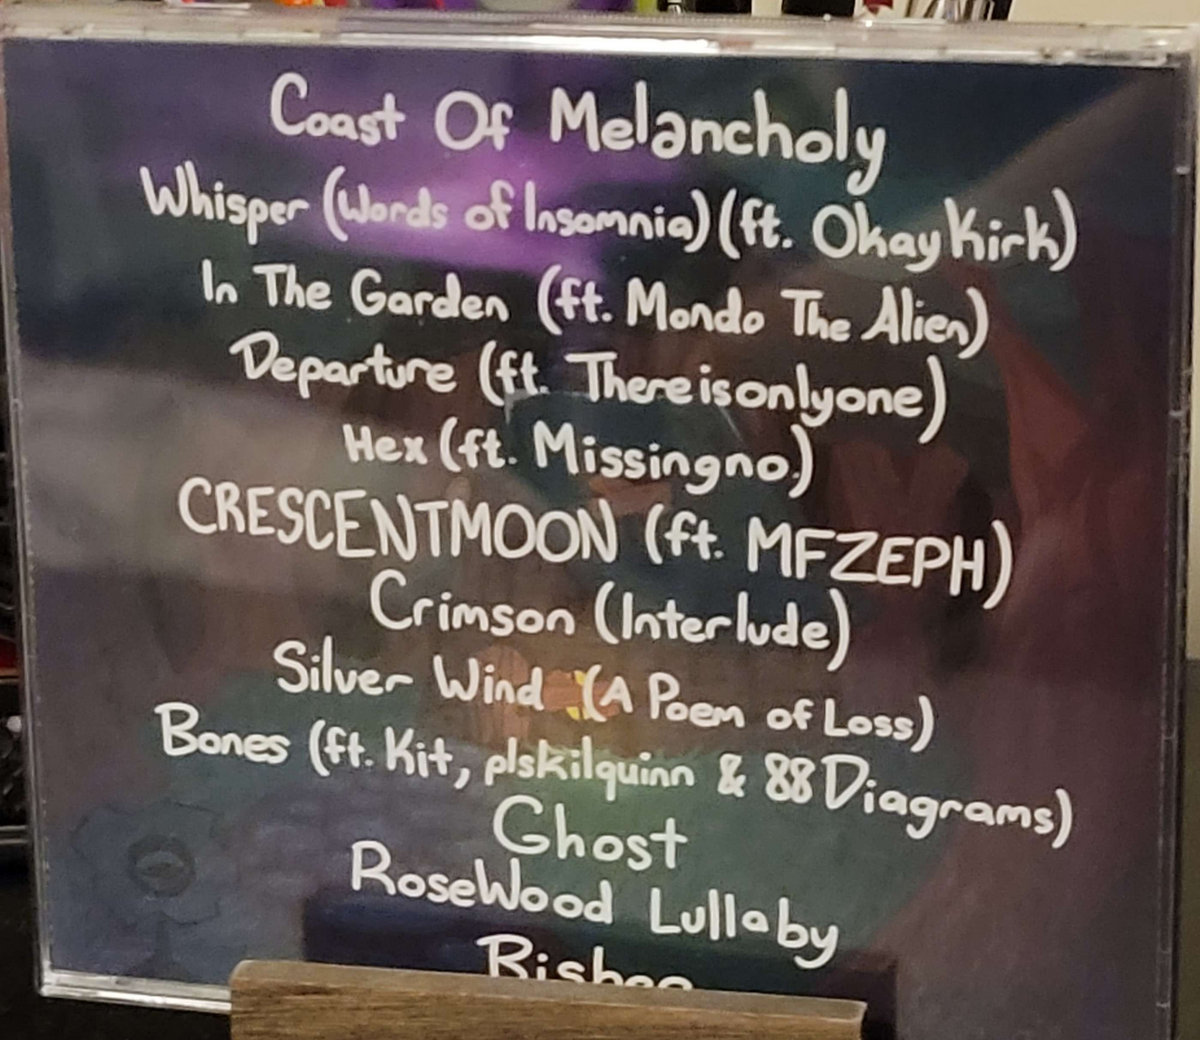 Coast Of Melancholy
Whisper (Words of Insomnia) (ft. Okay Kirk)
In The Garden (ft. Mondo The Alien)
Departure (ft. Thereisonlyone)
Hex (ft. Missingno.)
CRESCENTMOON (ft. MFZEPH)
Crimson (Interlude)
Silver Wind (A Poem of Loss)
Bones (ft. Kit, plskilquinn & 88 Diagrams)
Ghost
RoseWood Lullaby